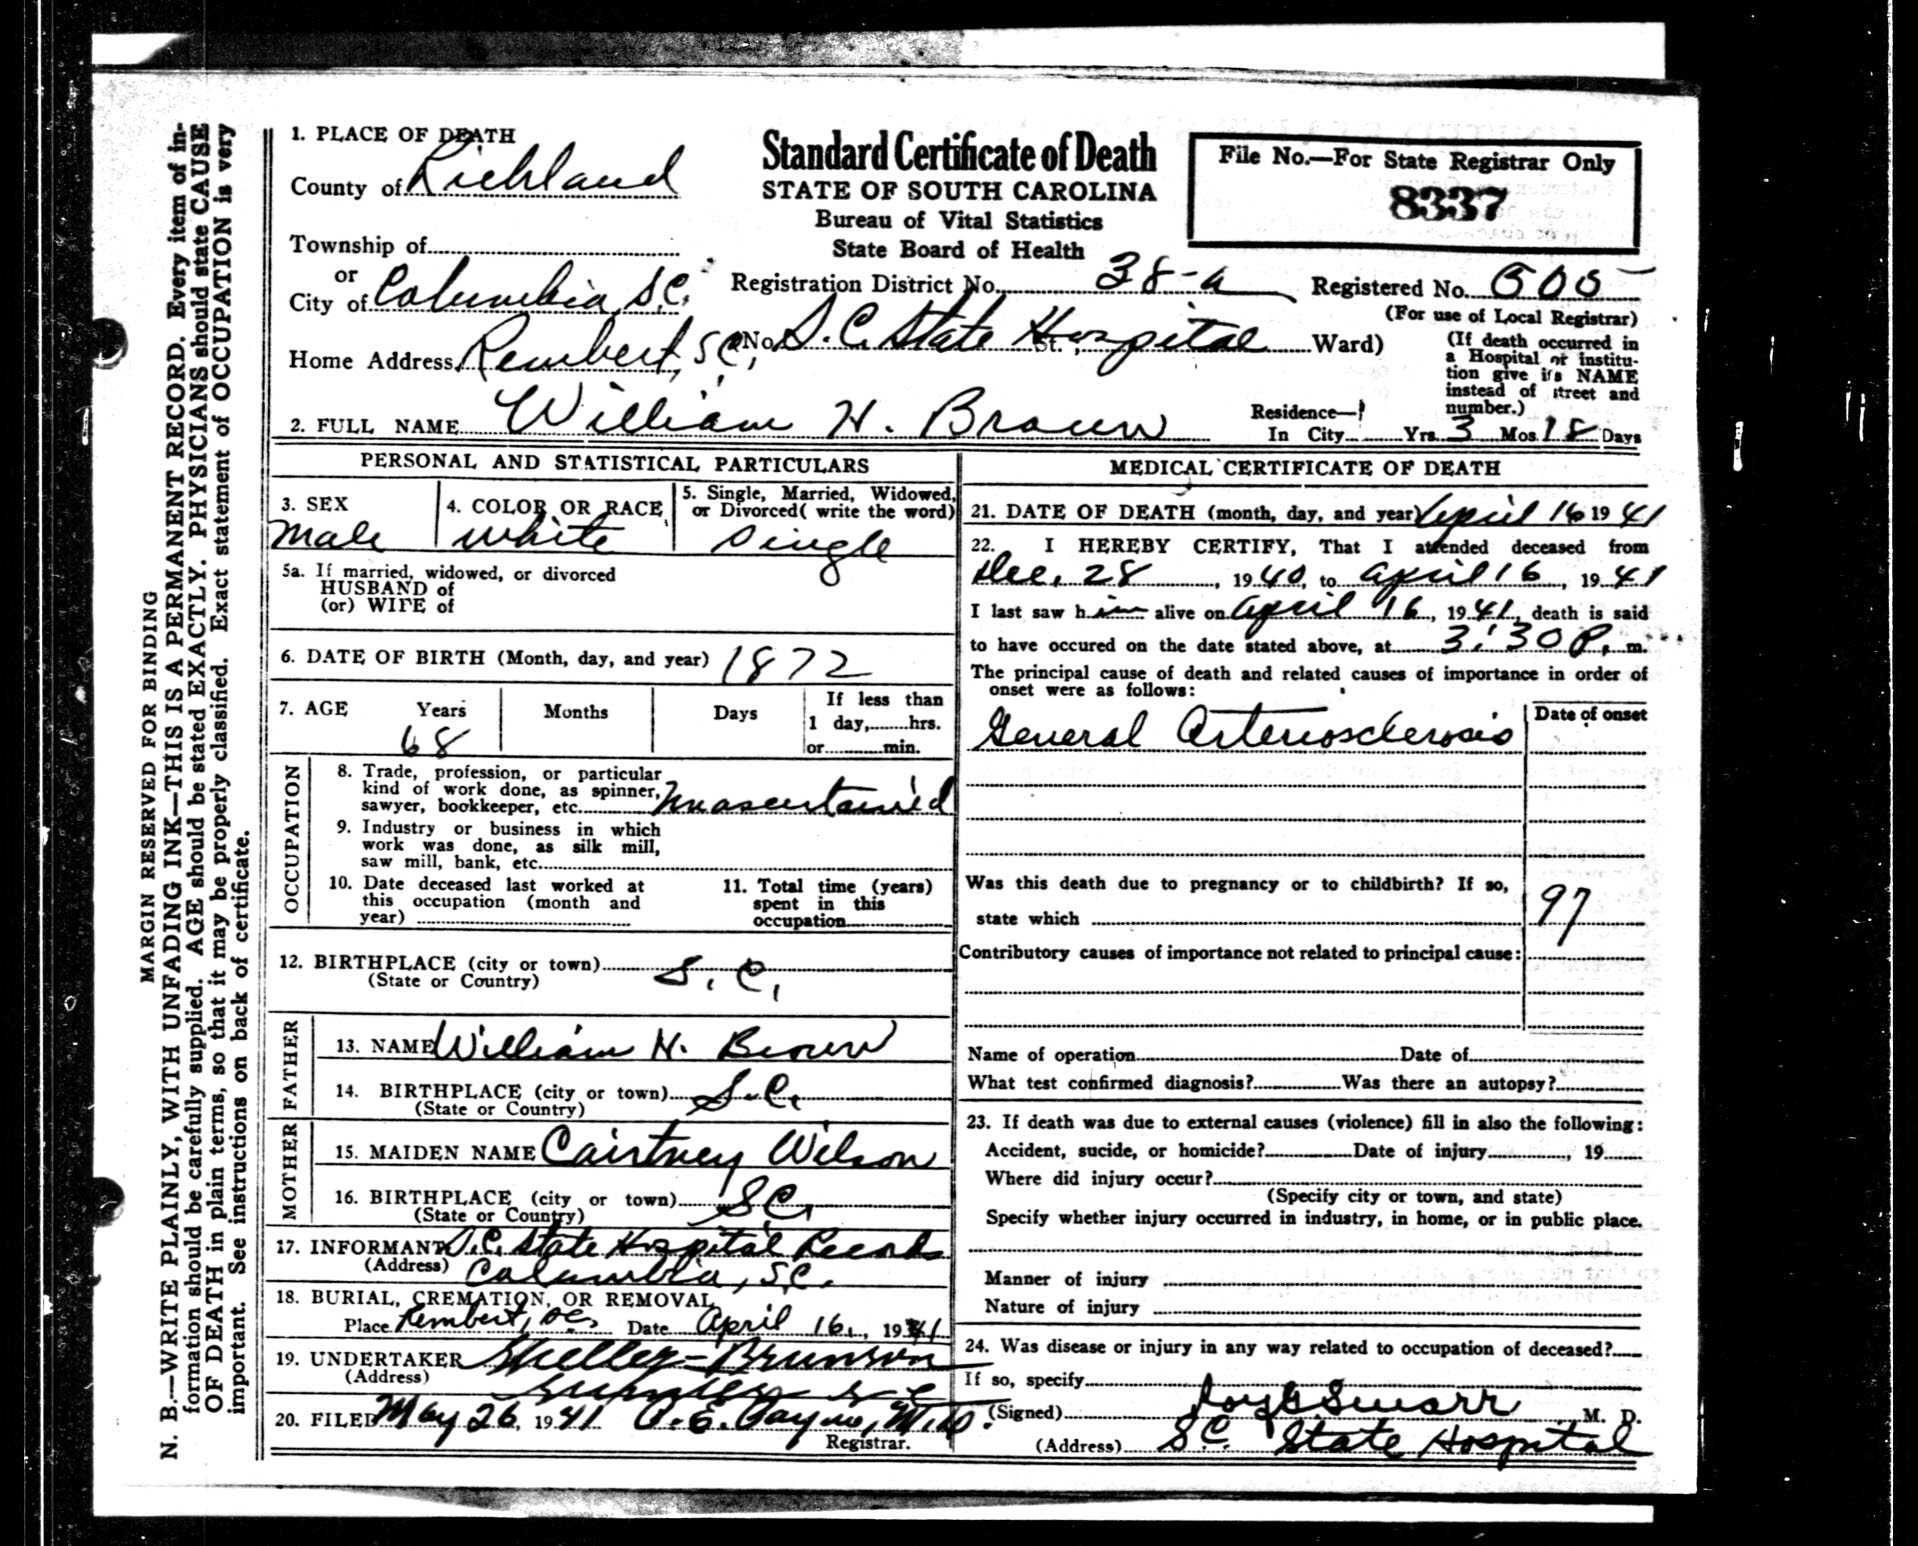 N. B.—WRITE PLAINLY, WITH UNFADING INK—THIS IS A PERMANENT RECORD. Every item of in-
formation should be carefully supplied. AGE should be stated EXACTLY. PHYSICIANS should state CAUSE
OF DEATH in plain terms, so that it may be properly classified. Exact statement of OCCUPATION is very
important. See instructions on back of certificate.
MARGIN RESERVED FOR BINDING
1. PLACE OF DEATH
County of Richland
Township of
or
City of Columbia, S.C.
Home Address Rembert, S.C.,
Standard Certificate of Death
STATE OF SOUTH CAROLINA
Bureau of Vital Statistics
State Board of Health
File No.—For State Registrar Only
8337
Registration District No. 38-a
Registered No. 505
(For use of Local Registrar)
No. S.C. State Hospital St., Ward)
(If death occurred in
a Hospital or institu-
tion give its NAME
instead of street and
number.)
2. FULL NAME William H. Brown
Residence—
In City Yrs. 3 Mos. 18 Days
PERSONAL AND STATISTICAL PARTICULARS
3. SEX
Male
4. COLOR OR RACE
White
5. Single, Married, Widowed,
or Divorced( write the word)
Single
5a. If married, widowed, or divorced
HUSBAND of
(or) WIFE of
6. DATE OF BIRTH (Month, day, and year) 1872
7. AGE Years Months Days
68
If less than
1 day, hrs.
or min.
OCCUPATION
8. Trade, profession, or particular
kind of work done, as spinner,
sawyer, bookkeeper, etc. Unascertained
9. Industry or business in which
work was done, as silk mill,
saw mill, bank, etc.
10. Date deceased last worked at
this occupation (month and
year)
11. Total time (years)
spent in this
occupation
12. BIRTHPLACE (city or town) S.C.
(State or Country)
FATHER
13. NAME William H. Brown
14. BIRTHPLACE (city or town) S.C.
(State or Country)
MOTHER
15. MAIDEN NAME Cairtney Wilson
16. BIRTHPLACE (city or town) S.C.
(State or Country)
17. INFORMANT S.C. State Hospital Records
(Address) Columbia, S.C.
18. BURIAL, CREMATION, OR REMOVAL
Place Rembert, S.C. Date April 16, 1941
19. UNDERTAKER Shelley-Brunson
(Address) Sumter S.C.
20. FILED May 26, 1941 P.E. Payne, M.D.
Registrar.
MEDICAL CERTIFICATE OF DEATH
21. DATE OF DEATH (month, day, and year) April 16 1941
22. I HEREBY CERTIFY, That I attended deceased from
Dec. 28, 1940, to April 16, 1941
I last saw him alive on April 16, 1941, death is said
to have occured on the date stated above, at 3:30 P. m.
The principal cause of death and related causes of importance in order of
onset were as follows:
Date of onset
General Arteriosclerosis
Was this death due to pregnancy or to childbirth? If so,
state which
97
Contributory causes of importance not related to principal cause:
Name of operation Date of
What test confirmed diagnosis? Was there an autopsy?
23. If death was due to external causes (violence) fill in also the following:
Accident, sucide, or homicide? Date of injury, 19
Where did injury occur?
(Specify city or town, and state)
Specify whether injury occurred in industry, in home, or in public place.
Manner of injury
Nature of injury
24. Was disease or injury in any way related to occupation of deceased?
If so, specify
(Signed) M. D.
(Address) S.C. State Hospital